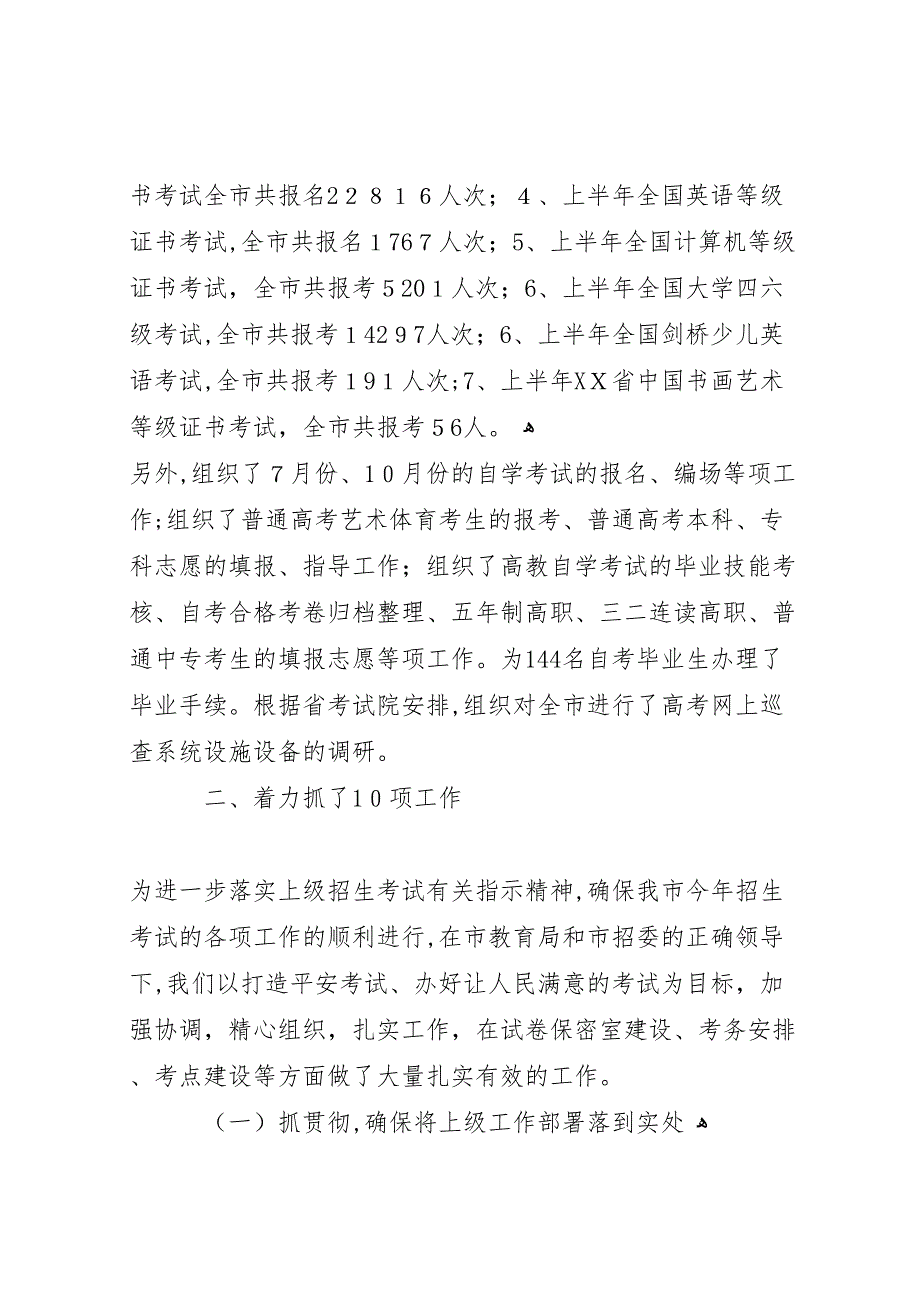 书考试全市共报名22816人次；4、上半年全国英语等级
证书考试,全市共报名1767人次；5、上半年全国计算机等级
证书考试，全市共报考5201人次；6、上半年全国大学四六
级考试,全市共报考14297人次；6、上半年全国剑桥少儿英
语考试,全市共报考191人次;7、上半年XX省中国书画艺术
等级证书考试，全市共报考56人。ﻫ
另外,组织了7月份、10月份的自学考试的报名、编场等项工
作;组织了普通高考艺术体育考生的报考、普通高考本科、专
科志愿的填报、指导工作；组织了高教自学考试的毕业技能考
核、自考合格考卷归档整理、五年制高职、三二连读高职、普
通中专考生的填报志愿等项工作。为144名自考毕业生办理了
毕业手续。根据省考试院安排,组织对全市进行了高考网上巡
查系统设施设备的调研。
二、着力抓了10项工作
为进一步落实上级招生考试有关指示精神,确保我市今年招生
考试的各项工作的顺利进行,在市教育局和市招委的正确领导
下,我们以打造平安考试、办好让人民满意的考试为目标，加
强协调，精心组织，扎实工作，在试卷保密室建设、考务安排
、考点建设等方面做了大量扎实有效的工作。
（一）抓贯彻,确保将上级工作部署落到实处ﻫ